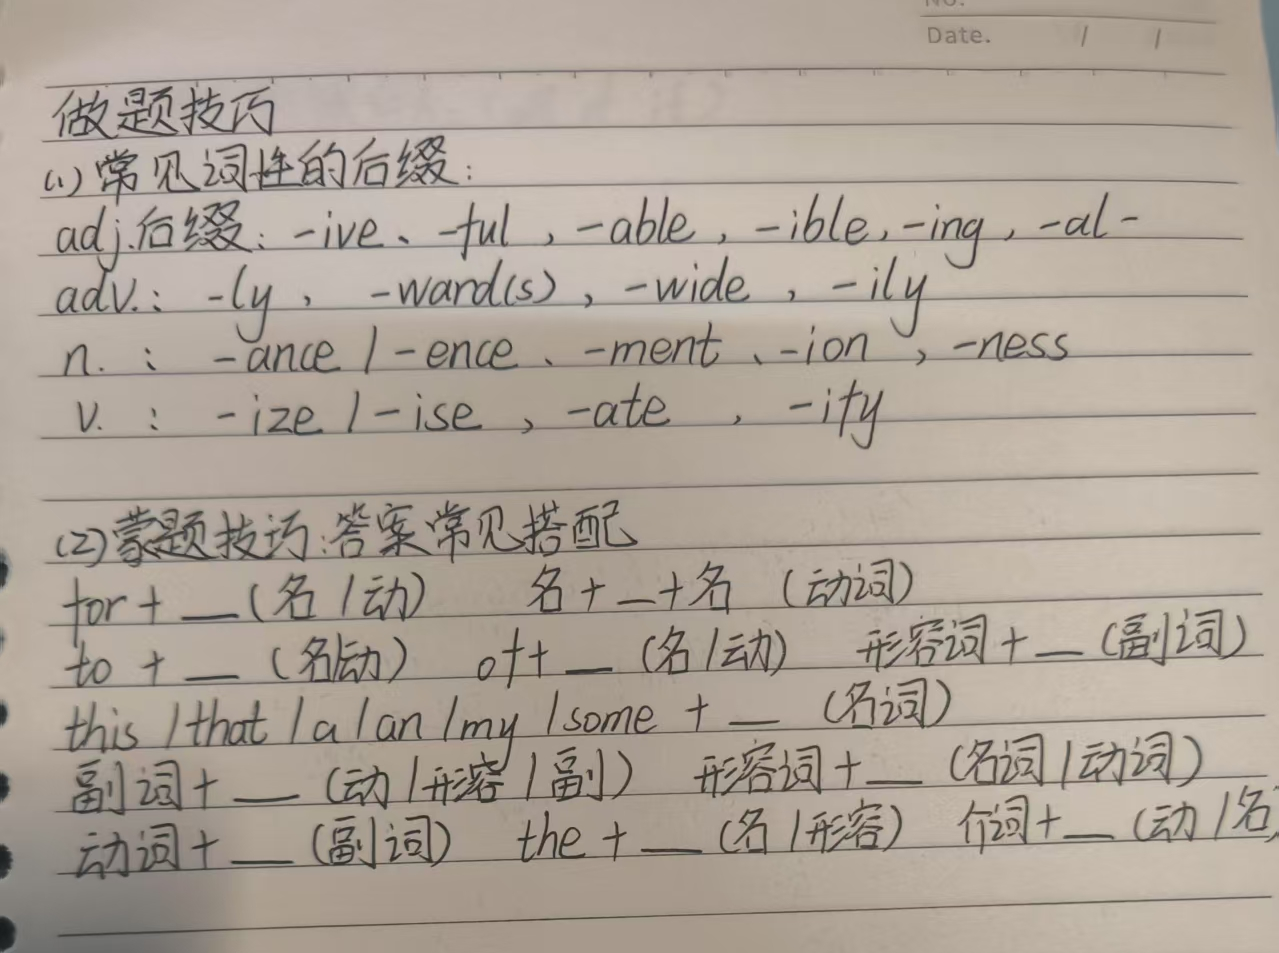 Date. / /
做题技巧
(1)常见词性的后缀:
adj.后缀: -ive、-ful , -able , -ible, -ing , -al -
adv.: -ly , -ward(s) , -wide , -ily
n. : -ance / -ence 、-ment 、-ion , -ness
v. : -ize / -ise , -ate , -ify
(2)蒙题技巧:答案常见搭配
for + __ (名 / 动) 名 + __ + 名 (动词)
to + __ (名/动) of + __ (名 / 动) 形容词 + __ (副词)
this / that / a / an / my / some + __ (名词)
副词 + __ (动 / 形容 / 副) 形容词 + __ (名词 / 动词)
动词 + __ (副词) the + __ (名 / 形容) 介词 + __ (动 / 名)